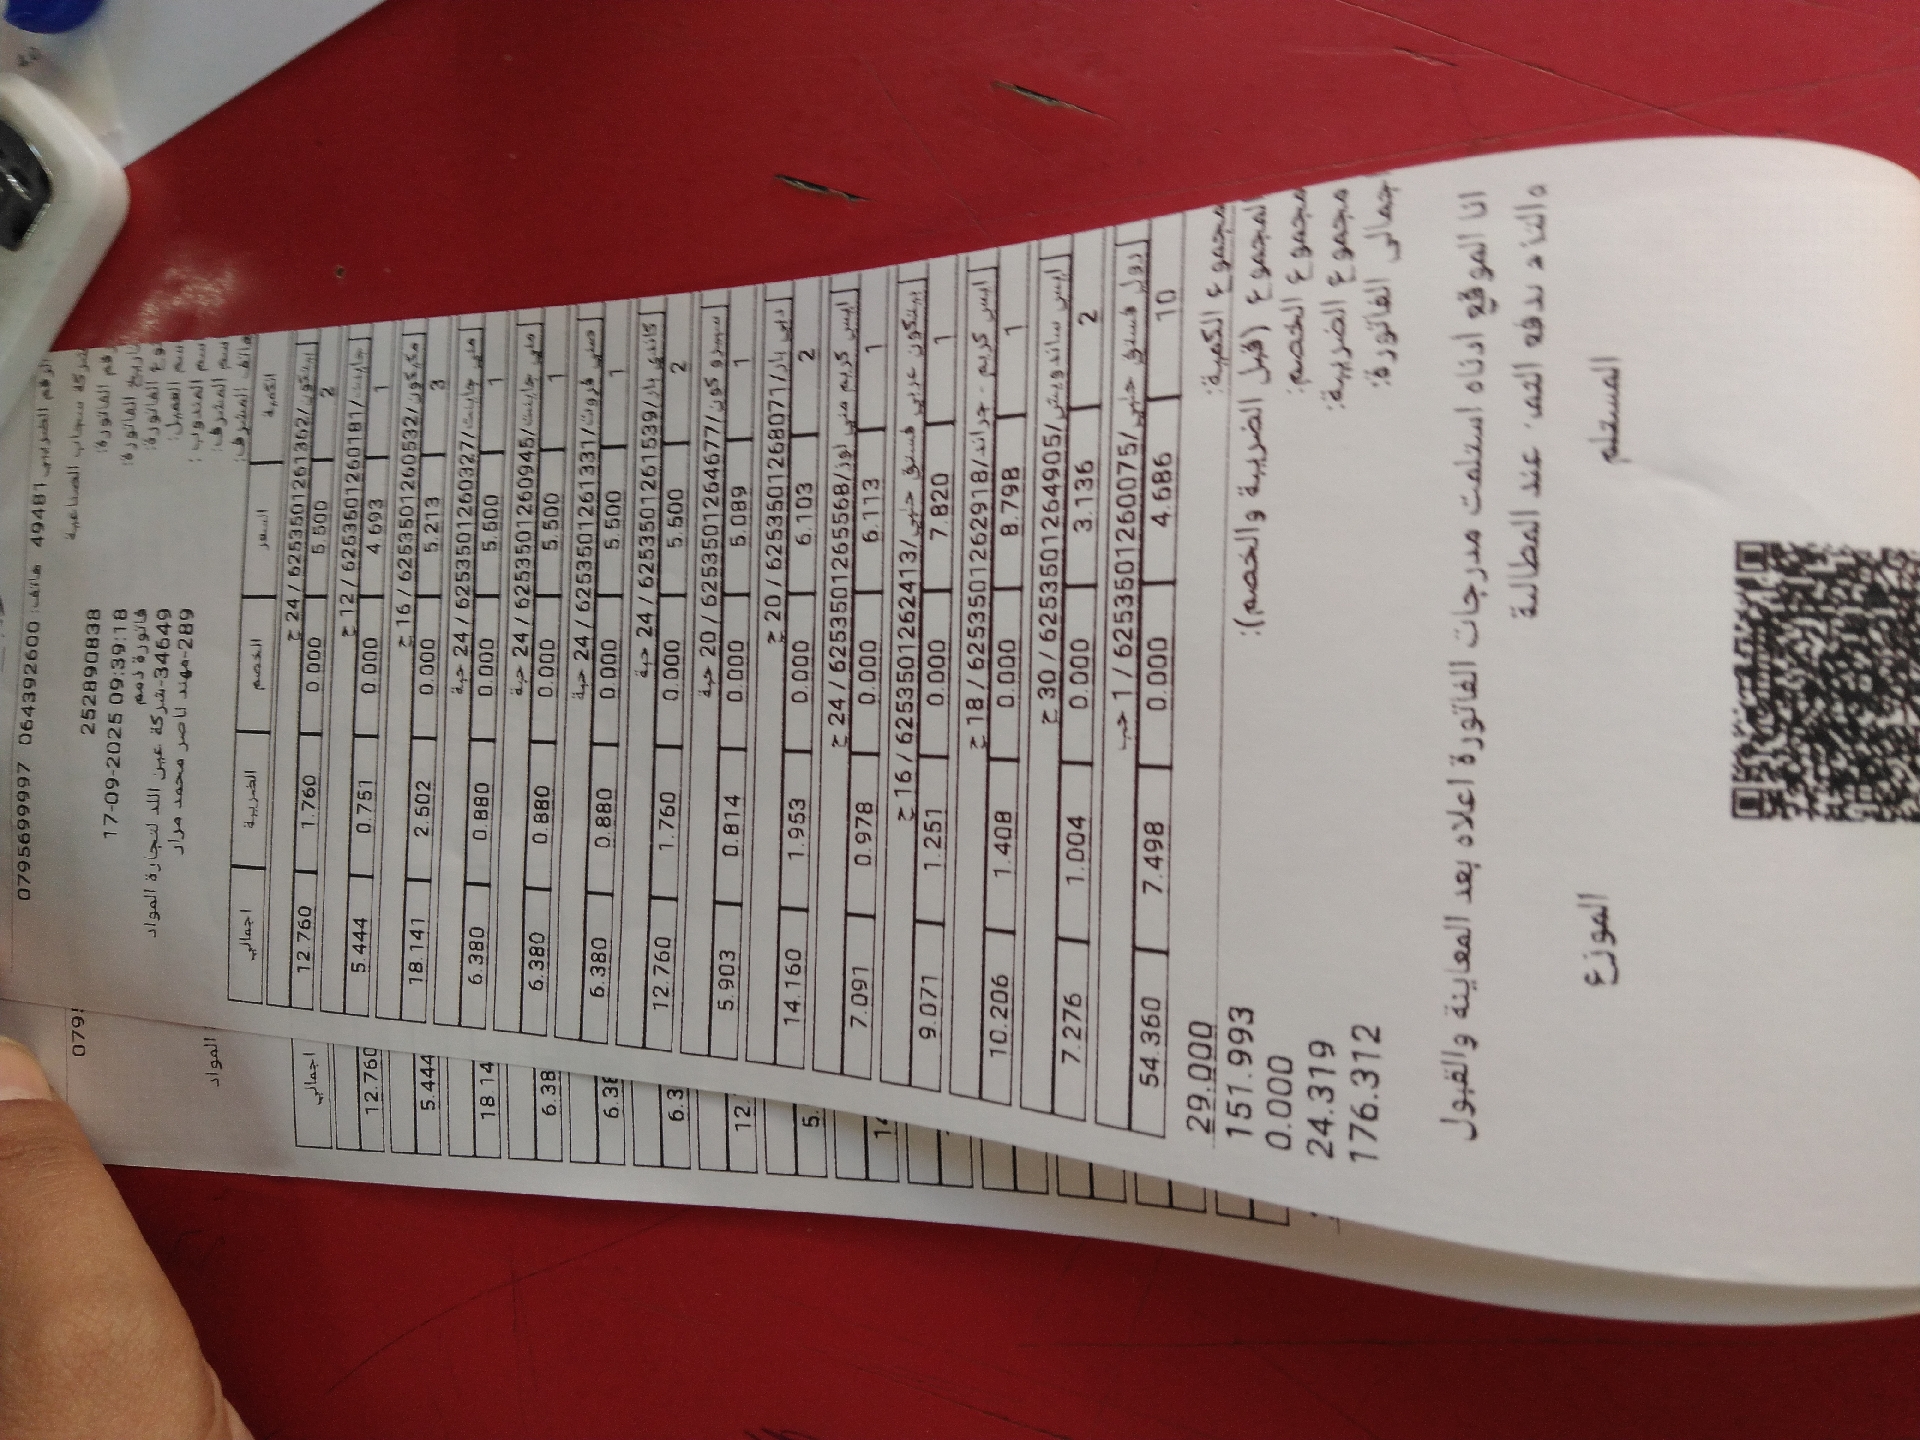 الرقم الضريبي 49481 هاتف: 0643926000 0795699997
شركة سحاب الصناعية
رقم الفاتورة: 252890838
تاريخ الفاتورة: 17-09-2025 09:39:18
نوع الفاتورة: فاتورة ذمم
اسم العميل: 34649-شركة عبر اللد لتجارة المواد
اسم المندوب: 289-مهند ناصر محمد مراد
اسم المشرف:
هاتف المشرف:
الكمية السعر الخصم الضريبة اجمالي
بيتكون/6253501261362 / 24 ح
2 5.500 0.000 1.760 12.760
جاينت/6253501260181 / 12 ح
1 4.693 0.000 0.751 5.444
ميكون/6253501260532 / 16 ح
3 5.213 0.000 2.502 18.141
مني جاينت/6253501260327 / 24 حبة
1 5.500 0.000 0.880 6.380
مني جاينت/6253501260945 / 24 حبة
1 5.500 0.000 0.880 6.380
مني فروت/6253501261331 / 24 حبة
1 5.500 0.000 0.880 6.380
كاندي بار/6253501261539 / 24 حبة
2 5.500 0.000 1.760 12.760
سيدو كون/6253501264677 / 20 حبة
1 5.089 0.000 0.814 5.903
دبي بار/6253501268071 / 20 ح
2 6.103 0.000 1.953 14.160
ايس كريم مني لوز/6253501265568 / 24 ح
1 6.113 0.000 0.978 7.091
بيتكون عربي فستق حلبي/6253501262413 / 16 ح
1 7.820 0.000 1.251 9.071
ايس كريم - جراند/6253501262918 / 18 ح
1 8.798 0.000 1.408 10.206
ايس ساندويش/6253501264905 / 30 ح
2 3.136 0.000 1.004 7.276
رول فستق حلبي/6253501260075 / 1 حب
10 4.686 0.000 7.498 54.360
مجموع الكمية: 29.000
المجموع (قبل الضريبة والخصم): 151.993
مجموع الخصم: 0.000
مجموع الضريبة: 24.319
اجمالي الفاتورة: 176.312
انا الموقع ادناه استلمت مدرجات الفاتورة اعلاه بعد المعاينة والقبول
والتزم بدفع الثمن عند المطالبة
المستلم الموزع
0795
المواد
اجمالي
12.760
5.444
18.14
6.38
6.38
6.3
12.
5.
14